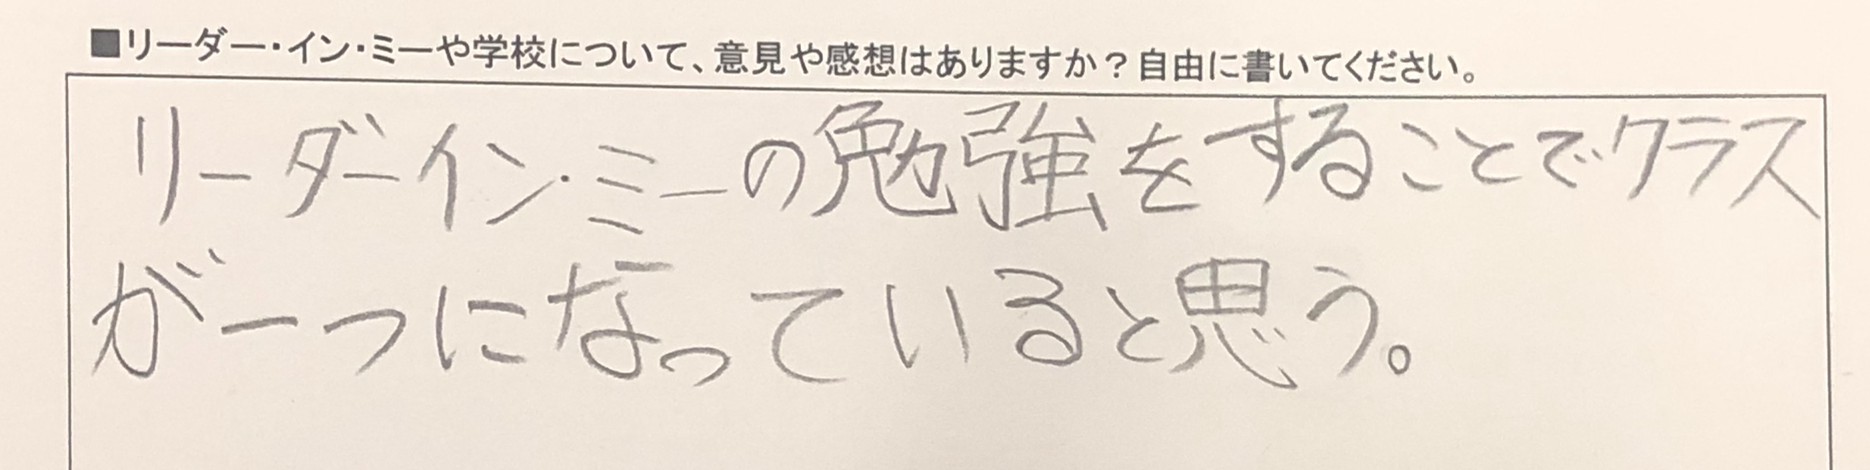 ■リーダー・イン・ミーや学校について、意見や感想はありますか？自由に書いてください。
リーダーイン・ミーの勉強をすることでクラス
が一つになっていると思う。